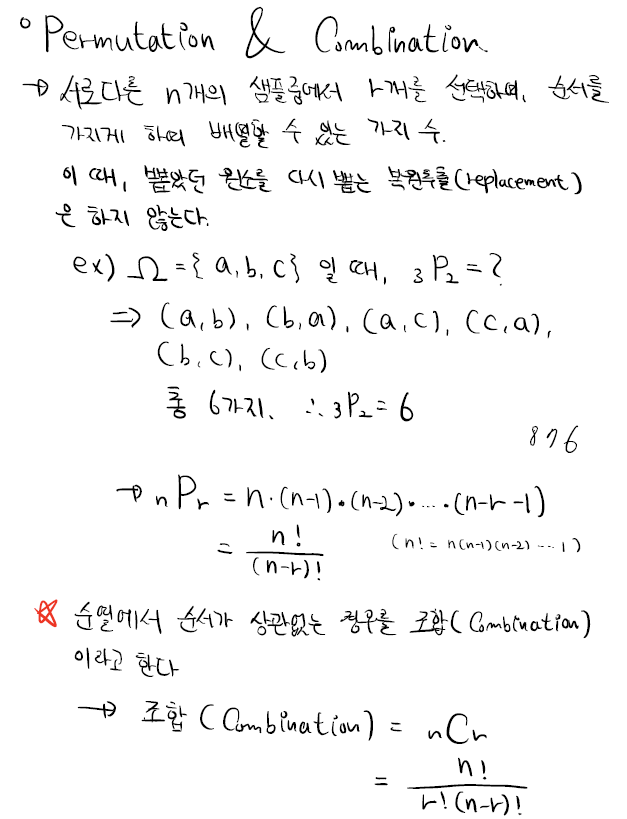 ° Permutation & Combination
→ 서로다른 n개의 샘플중에서 r개를 선택하여, 순서를
가지게 하여 배열할 수 있는 가지 수.
이 때, 뽑았던 원소를 다시 뽑는 복원추출(replacement)
은 하지 않는다.
ex) Ω = { a, b, c } 일 때, ₃P₂ = ?
⇒ (a, b), (b, a), (a, c), (c, a),
(b, c), (c, b)
총 6가지. ∴ ₃P₂ = 6
876
→ nPr = n·(n-1)·(n-2)·....·(n-r-1)
= n! / (n-r)! (n! = n(n-1)(n-2) ... 1)
☆ 순열에서 순서가 상관없는 경우를 조합(Combination)
이라고 한다
→ 조합 (Combination) = nCr
= n! / r!(n-r)!